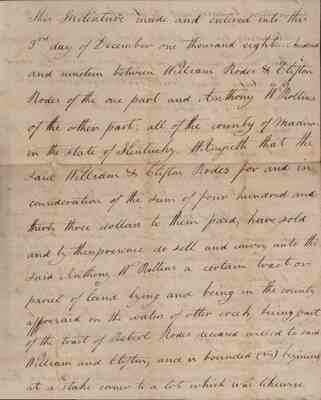 This Indenture made and entered into this
3rd day of December one thousand eight hundred
and nineteen between William Rodes & Clifton
Rodes of the one part and Anthony W Rollins
of the other part, all of the county of Madison
in the state of Kentucky. Witnesseth that the
said William & Clifton Rodes for and in
consideration of the sum of four hundred and
thirty three dollars to them paid, have sold
and by these presence do sell and convey unto the
said Anthony W Rollins a certain tract or
parcel of Land lying and being in the county
afforesaid on the waters of otter creek, being part
of the tract of Robert Rodes deceased willed to said
William and Clifton, and is bounded (viz) begining
at a stake corner to a lot which was likewise